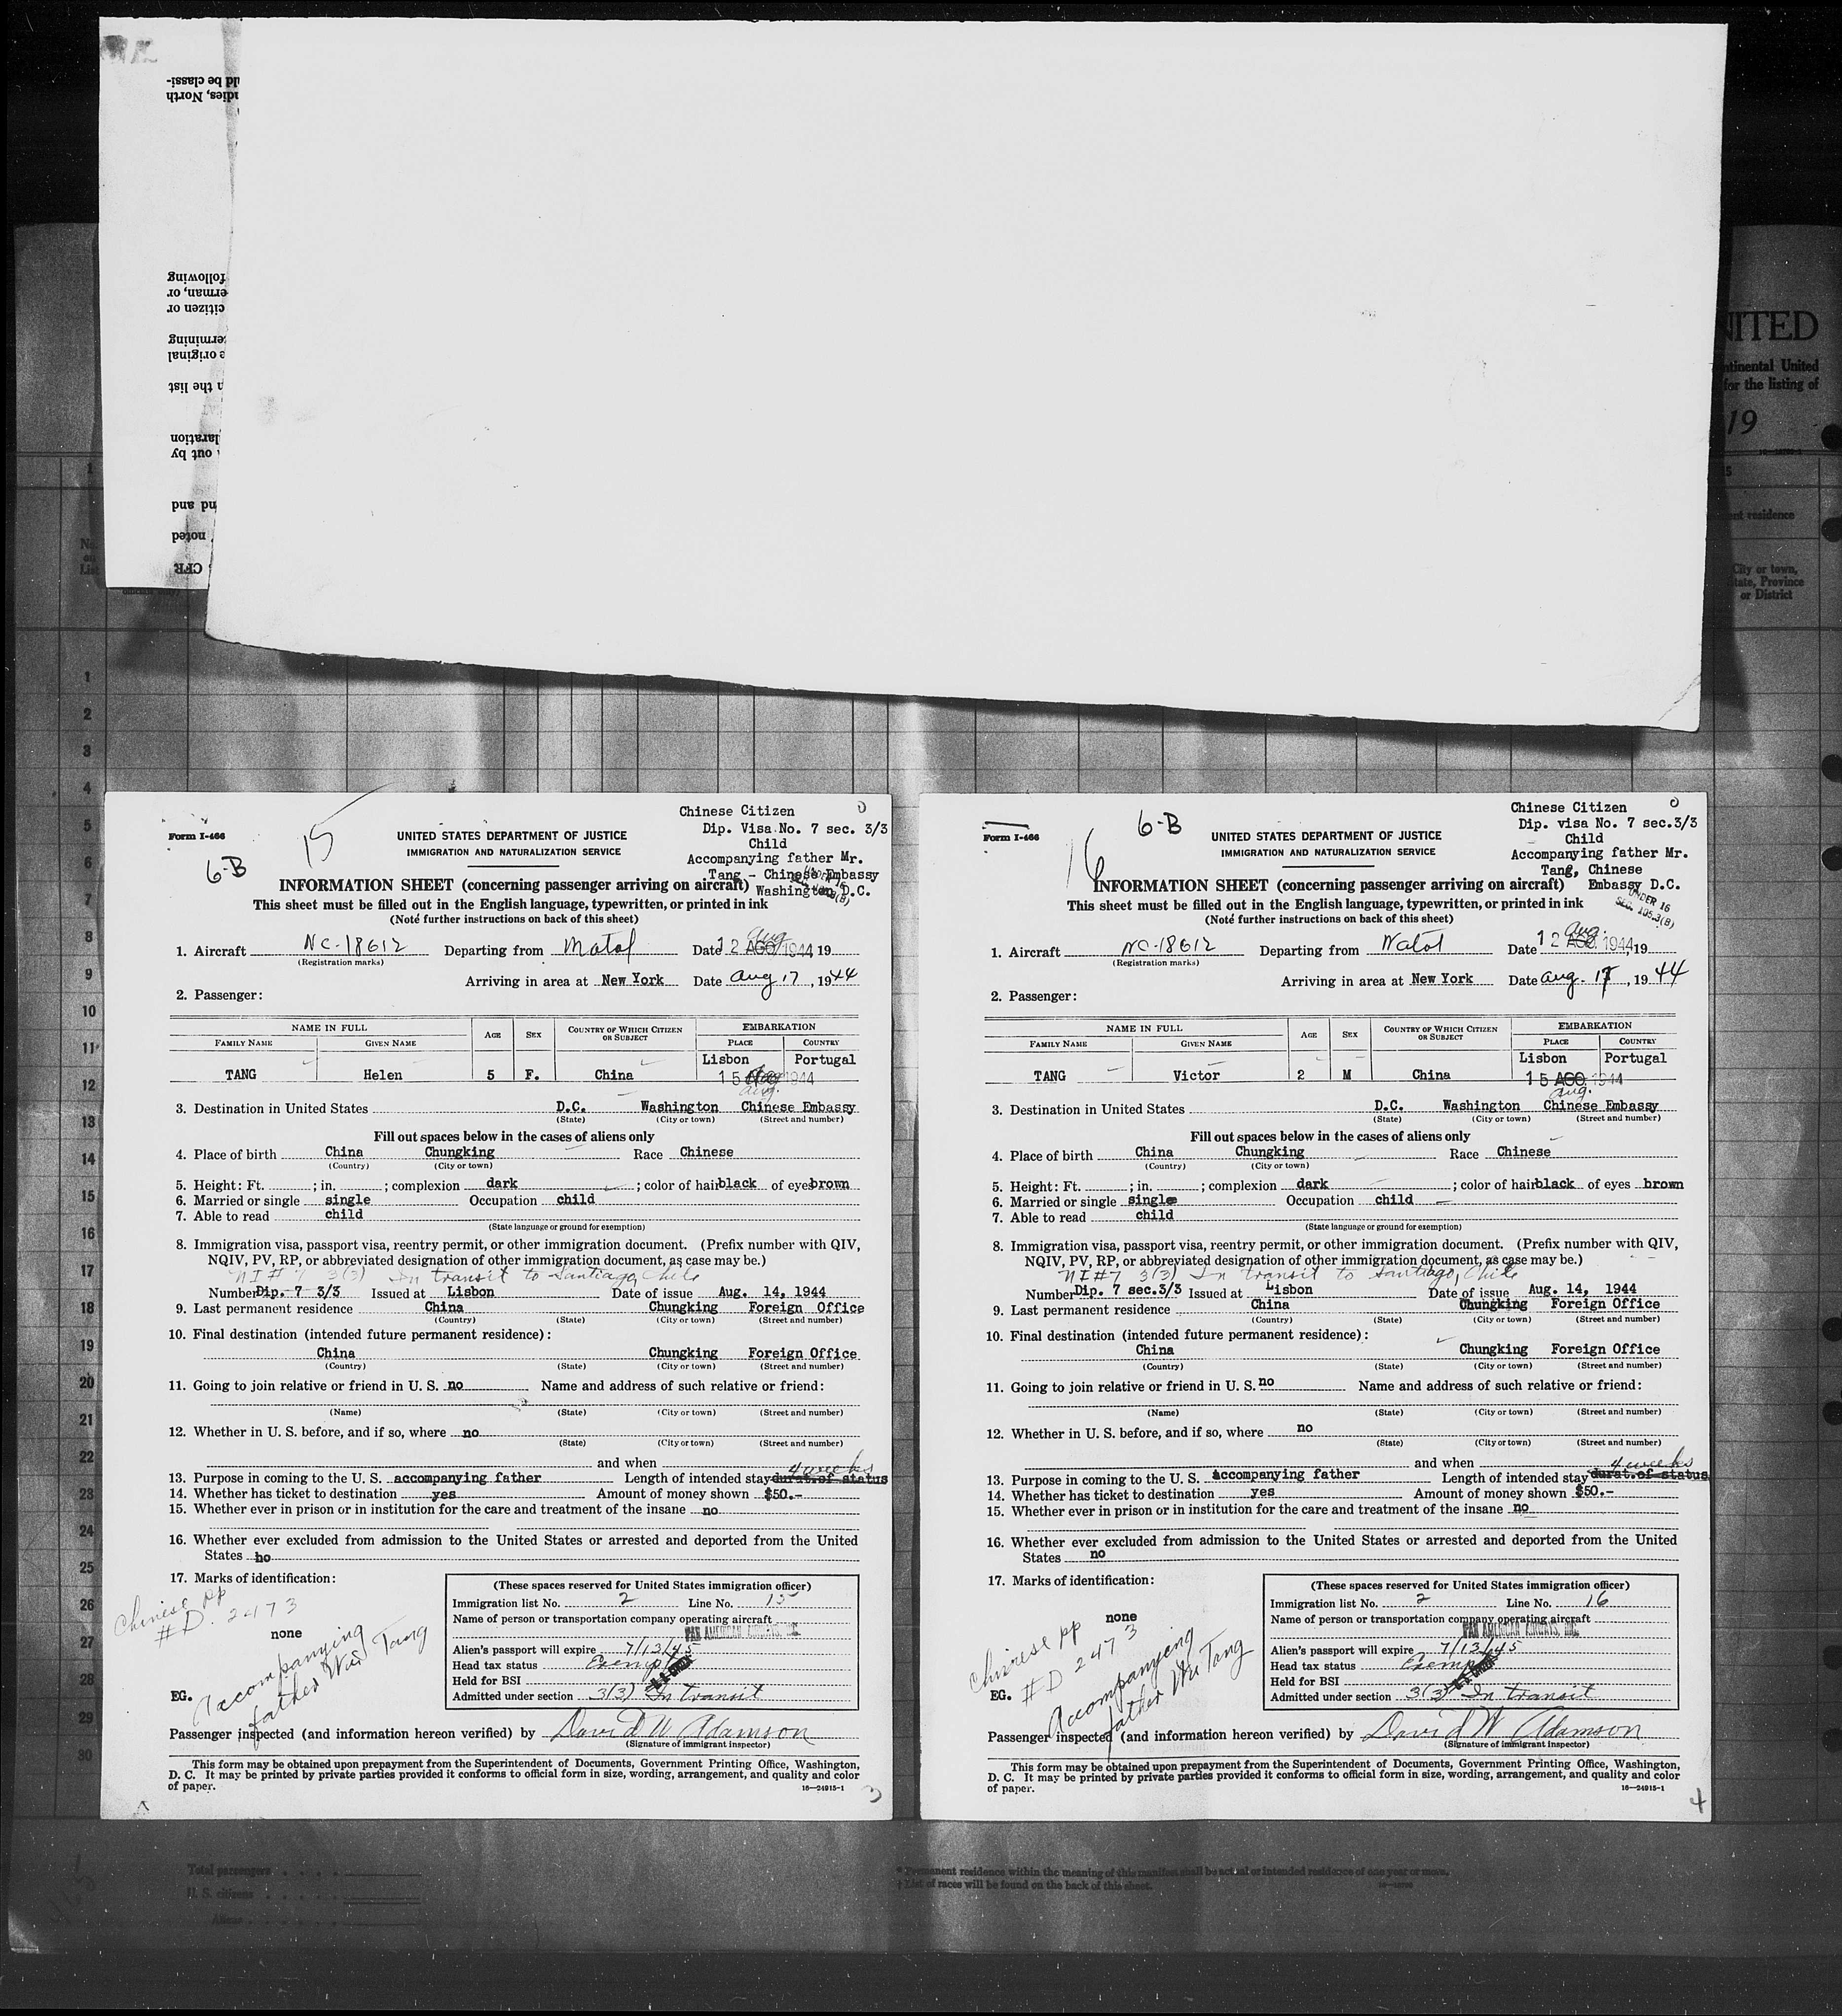 ld be classi-
ndies, North
following
erman, or
citizen or
termining
e original
n the list
laration
out by
nd and
noted
CFR
NITED
ntinental United
for the listing of
19
ent residence
City or town,
State, Province
or District
No.
on
List
1
2
3
4
5
6
7
8
9
10
11
12
13
14
15
16
17
18
19
20
21
22
23
24
25
26
27
28
29
30
Form I-466
15
6-B
UNITED STATES DEPARTMENT OF JUSTICE
IMMIGRATION AND NATURALIZATION SERVICE
Chinese Citizen
Dip. Visa No. 7 sec. 3/3
Child
Accompanying father Mr.
Tang - Chinese Embassy
Washington D.C.
INFORMATION SHEET (concerning passenger arriving on aircraft)
This sheet must be filled out in the English language, typewritten, or printed in ink
(Note further instructions on back of this sheet)
1. Aircraft NC-18612 Departing from Natal Date 12 AGO 1944 19
Aug
(Registration marks)
Arriving in area at New York Date Aug 17, 1944
2. Passenger:
NAME IN FULL AGE SEX COUNTRY OF WHICH CITIZEN OR SUBJECT EMBARKATION
FAMILY NAME GIVEN NAME PLACE COUNTRY
Lisbon Portugal
TANG Helen 5 F. China 15 AGO 1944
Aug.
3. Destination in United States D.C. Washington Chinese Embassy
(State) (City or town) (Street and number)
Fill out spaces below in the cases of aliens only
4. Place of birth China Chungking Race Chinese
(Country) (City or town)
5. Height: Ft. ; in. ; complexion dark ; color of hair black of eyes brown
6. Married or single single Occupation child
7. Able to read child
(State language or ground for exemption)
8. Immigration visa, passport visa, reentry permit, or other immigration document. (Prefix number with QIV,
NQIV, PV, RP, or abbreviated designation of other immigration document, as case may be.)
NI #7 3(3) In transit to Santiago, Chile
Number Dip. 7 3/3 Issued at Lisbon Date of issue Aug. 14, 1944
9. Last permanent residence China Chungking Foreign Office
(Country) (State) (City or town) (Street and number)
10. Final destination (intended future permanent residence):
China Chungking Foreign Office
(Country) (State) (City or town) (Street and number)
11. Going to join relative or friend in U. S. no Name and address of such relative or friend:
(Name) (State) (City or town) (Street and number)
12. Whether in U. S. before, and if so, where no
(State) (City or town) (Street and number)
and when
4 weeks
13. Purpose in coming to the U. S. accompanying father Length of intended stay durat.of status
14. Whether has ticket to destination yes Amount of money shown $50.-
15. Whether ever in prison or in institution for the care and treatment of the insane no
16. Whether ever excluded from admission to the United States or arrested and deported from the United
States no
17. Marks of identification:
Chinese pp
#D. 2473
none
Accompanying
father Wu Tang
EG.
(These spaces reserved for United States immigration officer)
Immigration list No. 2 Line No. 15
Name of person or transportation company operating aircraft
PAN AMERICAN AIRWAYS, INC.
Alien's passport will expire 7/13/45
Head tax status Exempt
Held for BSI
Admitted under section 3(3) In transit
Passenger inspected (and information hereon verified) by David W Adamson
(Signature of immigrant inspector)
This form may be obtained upon prepayment from the Superintendent of Documents, Government Printing Office, Washington,
D. C. It may be printed by private parties provided it conforms to official form in size, wording, arrangement, and quality and color
of paper.
16—24915-1
3
Form I-466
16
6-B
UNITED STATES DEPARTMENT OF JUSTICE
IMMIGRATION AND NATURALIZATION SERVICE
Chinese Citizen
Dip. visa No. 7 sec.3/3
Child
Accompanying father Mr.
Tang, Chinese
Embassy D.C.
UNDER 16
SEC. 105.3(B)
INFORMATION SHEET (concerning passenger arriving on aircraft)
This sheet must be filled out in the English language, typewritten, or printed in ink
(Note further instructions on back of this sheet)
1. Aircraft NC-18612 Departing from Natal Date 12 AGO. 1944 19
Aug.
(Registration marks)
Arriving in area at New York Date Aug. 17, 1944
2. Passenger:
NAME IN FULL AGE SEX COUNTRY OF WHICH CITIZEN OR SUBJECT EMBARKATION
FAMILY NAME GIVEN NAME PLACE COUNTRY
Lisbon Portugal
TANG Victor 2 M China 15 AGO 1944
Aug.
3. Destination in United States D.C. Washington Chinese Embassy
(State) (City or town) (Street and number)
Fill out spaces below in the cases of aliens only
4. Place of birth China Chungking Race Chinese
(Country) (City or town)
5. Height: Ft. ; in. ; complexion dark ; color of hair black of eyes brown
6. Married or single single Occupation child
7. Able to read child
(State language or ground for exemption)
8. Immigration visa, passport visa, reentry permit, or other immigration document. (Prefix number with QIV,
NQIV, PV, RP, or abbreviated designation of other immigration document, as case may be.)
NI #7 3(3) In transit to Santiago, Chile
Number Dip. 7 sec.3/3 Issued at Lisbon Date of issue Aug. 14, 1944
9. Last permanent residence China Chungking Foreign Office
(Country) (State) (City or town) (Street and number)
10. Final destination (intended future permanent residence):
China Chungking Foreign Office
(Country) (State) (City or town) (Street and number)
11. Going to join relative or friend in U. S. no Name and address of such relative or friend:
(Name) (State) (City or town) (Street and number)
12. Whether in U. S. before, and if so, where no
(State) (City or town) (Street and number)
and when
4 weeks
13. Purpose in coming to the U. S. accompanying father Length of intended stay durat.of status
14. Whether has ticket to destination yes Amount of money shown $50.-
15. Whether ever in prison or in institution for the care and treatment of the insane no
16. Whether ever excluded from admission to the United States or arrested and deported from the United
States no
17. Marks of identification:
none
Chinese pp
#D 2473
Accompanying
father Wu Tang
EG.
(These spaces reserved for United States immigration officer)
Immigration list No. 2 Line No. 16
Name of person or transportation company operating aircraft
PAN AMERICAN AIRWAYS, INC.
Alien's passport will expire 7/13/45
Head tax status Exempt
Held for BSI
Admitted under section 3(3) In transit
Passenger inspected (and information hereon verified) by David W Adamson
(Signature of immigrant inspector)
This form may be obtained upon prepayment from the Superintendent of Documents, Government Printing Office, Washington,
D. C. It may be printed by private parties provided it conforms to official form in size, wording, arrangement, and quality and color
of paper.
16—24915-1
4
Total passengers
U. S. citizens
Aliens
* Permanent residence within the meaning of this manifest shall be actual or intended residence of one year or more.
† List of races will be found on the back of this sheet.